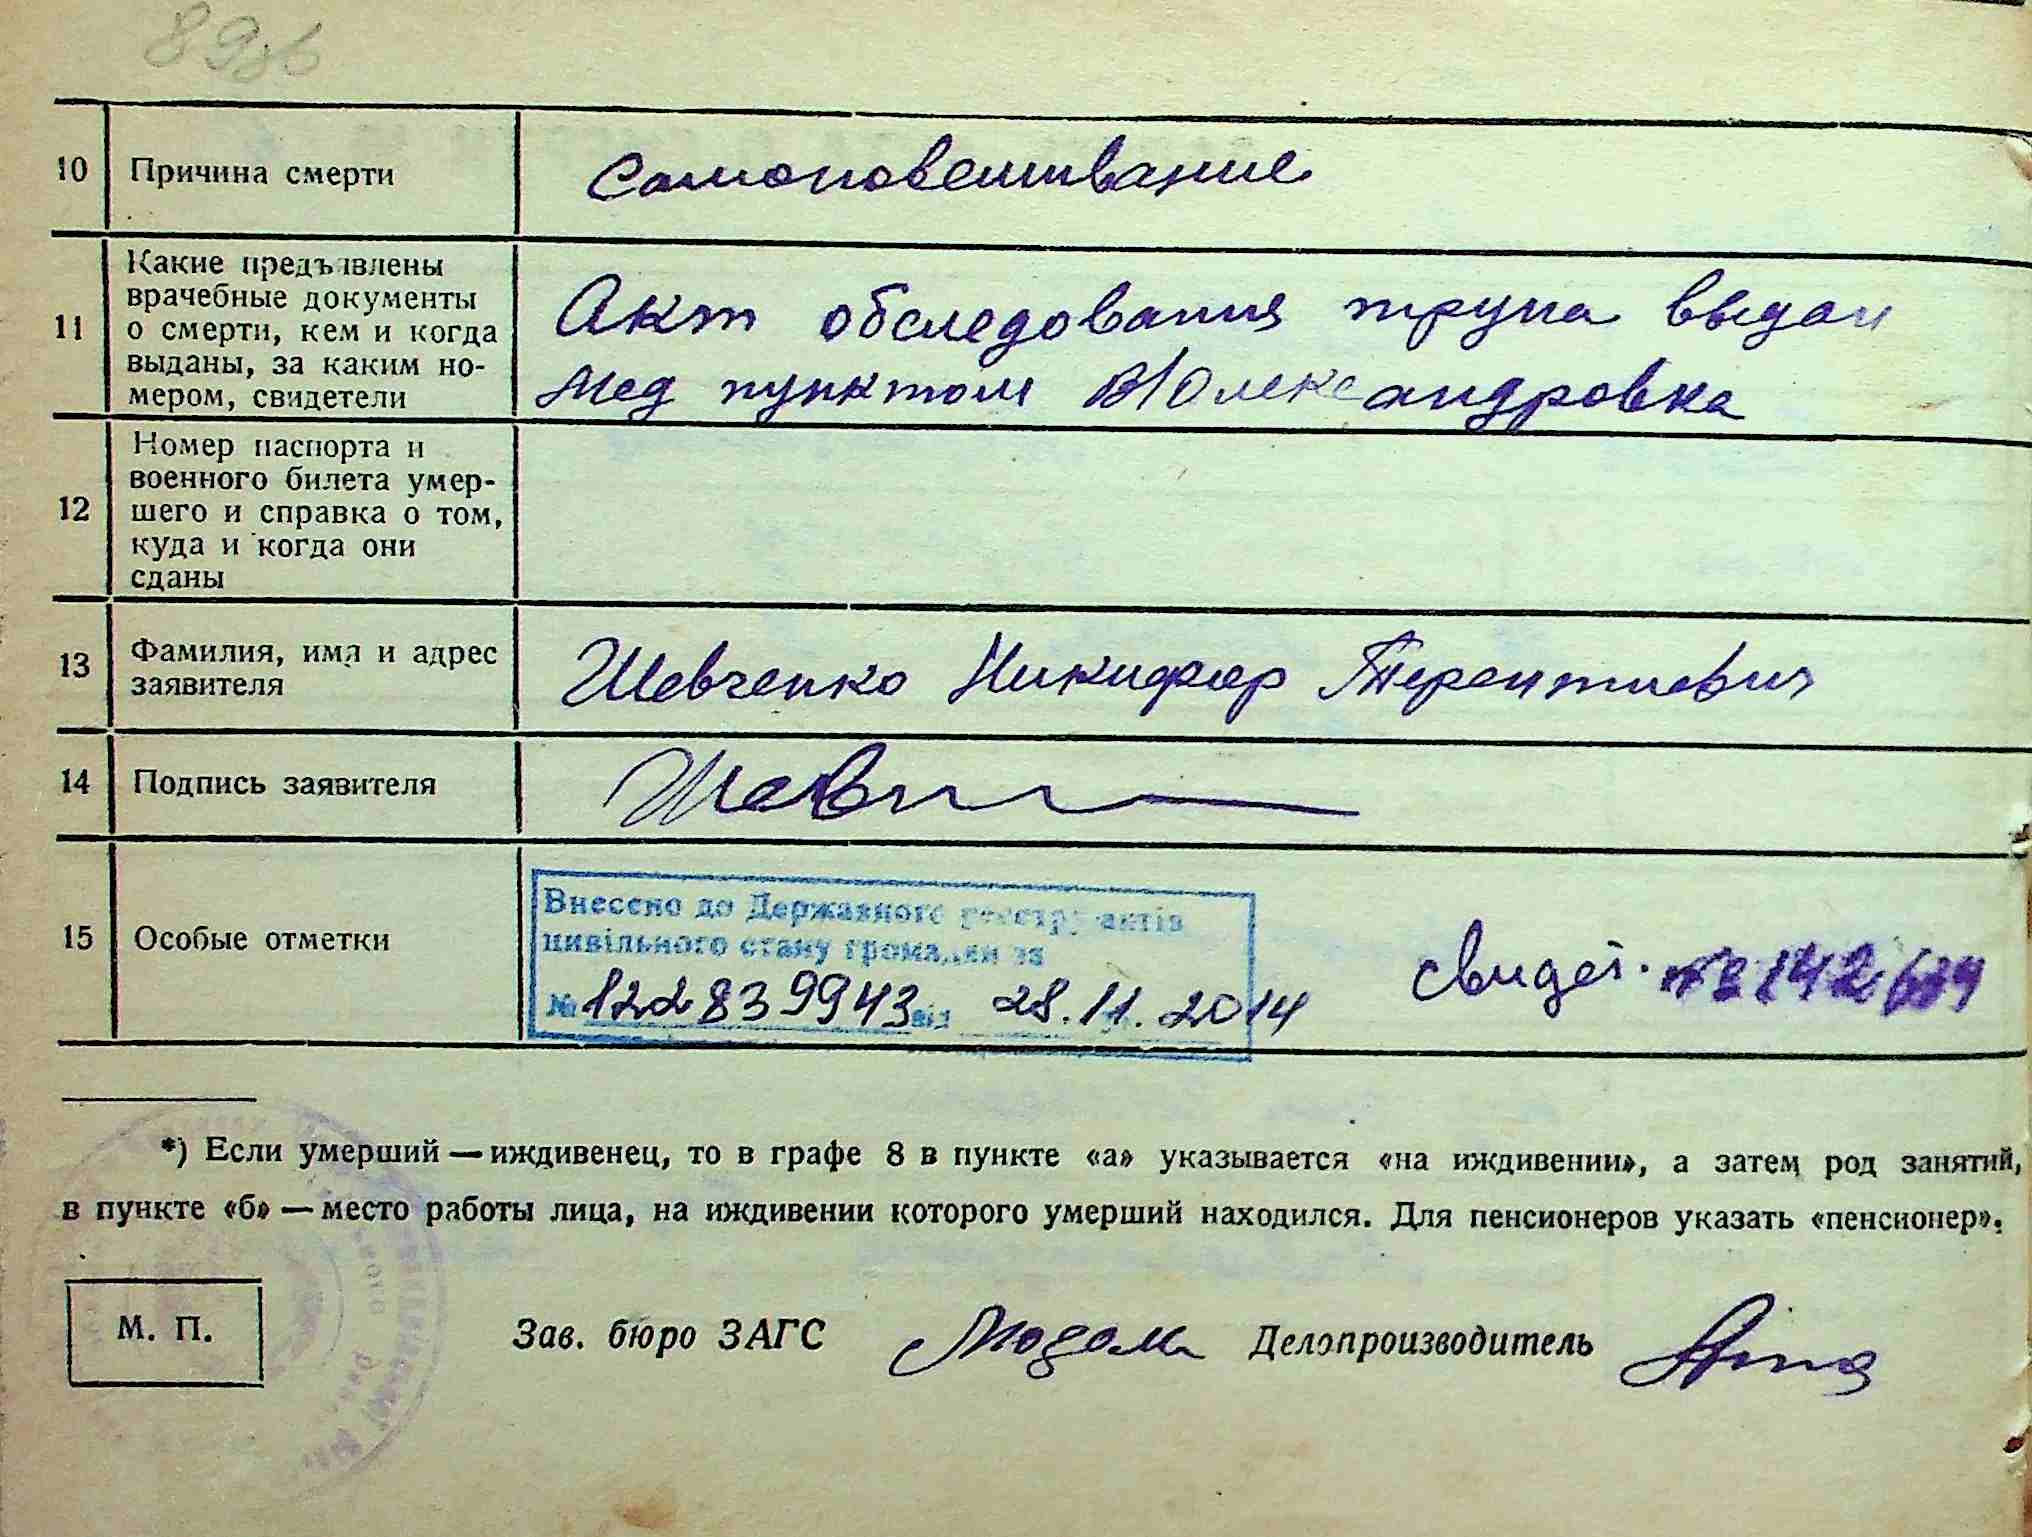 89зв
10 Причина смерти Самоповешивание
11 Какие предъявлены врачебные документы о смерти, кем и когда выданы, за каким но-мером, свидетели
Акт обследования трупа выдан
мед пунктом В/Олександровка
12 Номер паспорта и
военного билета умер-
шего и справка о том,
куда и когда они
сданы
13 Фамилия, имя и адрес
заявителя
Шевченко Никифор Терентиевич
14 Подпись заявителя Шевч
15 Особые отметки
Внесено до Державного реєстру актів
цивільного стану громадян за
№ 122839943 від 28.11.2014
свидет. 142
*) Если умерший — иждивенец, то в графе 8 в пункте «а» указывается «на иждивении», а затем род занятий,
в пункте «б» — место работы лица, на иждивении которого умерший находился. Для пенсионеров указать «пенсионер».
М. П.
Зав. бюро ЗАГС Делопроизводитель